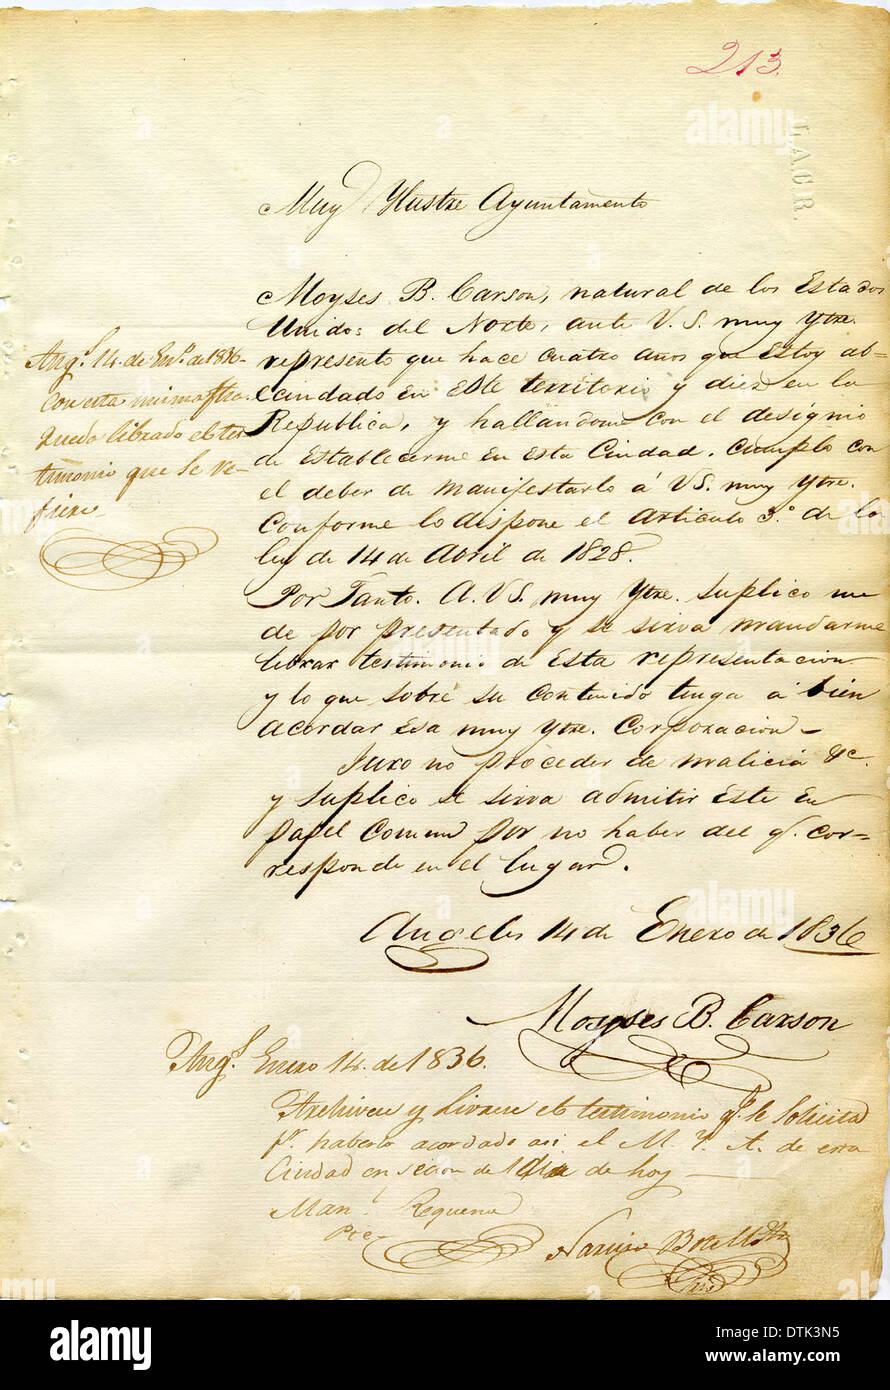 213.
L.A.C.R.
Muy Ylustre Ayuntamento
Moyses B. Carson, natural de los Estados
Unidos del Norte, ante V. S. muy Ytre.
represento que hace cuatro años que estoy ab-
ecindado en este territorio y diez en la
Republica, y hallandome con el designio
de establecerme en esta Ciudad. cumplo con
el deber de manifestarlo á VS. muy Ytre.
Conforme lo dispone el Articulo 3.º de la
ley de 14 de Abril de 1828.
Por Tanto. A. VS. muy Ytre. suplico me
de por presentado y se sirva mandarme
librar testimonio de esta representacion
y lo que sobre su contenido tenga á bien
acordar esa muy Ytre. Corporacion –
Juro no proceder de malicia &c.
y suplico se sirva admitir este en
papel comun por no haber del q.e cor-
responde en el lugar.
Angeles 14 de Enero de 1836
Moyses B. Carson
Ang.s 14. de En.o de 1836-
Con esta misma fha.
queda librado el tes-
timonio que se re-
fiere
Ang.s Enero 14. de 1836.
Archivese y librese el testimonio q.e se solicita
p.r haberlo acordado asi el M. Y. A. de esta
Ciudad en secion de 1 de hoy —
Man.l Requena
Pte-
Narciso Botello
Srio
alamy
Image ID: DTK3N5
www.alamy.com